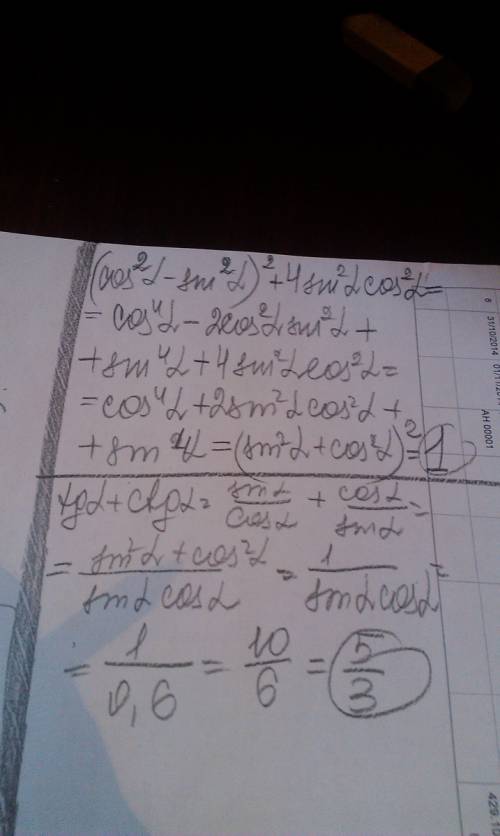 (cos²α - sin²α)² + 4 sin²α cos²α =
= cos⁴α - 2cos²α sin²α +
+ sin⁴α + 4 sin²α cos²α =
= cos⁴α + 2 sin²α cos²α +
+ sin⁴α = (sin²α + cos²α)² = 1
tgα + ctgα = sinα/cosα + cosα/sinα =
= (sin²α + cos²α)/(sinα cosα) = 1/(sinα cosα) =
= 1/0,6 = 10/6 = 5/3
6
31/10/2014
AH 00001